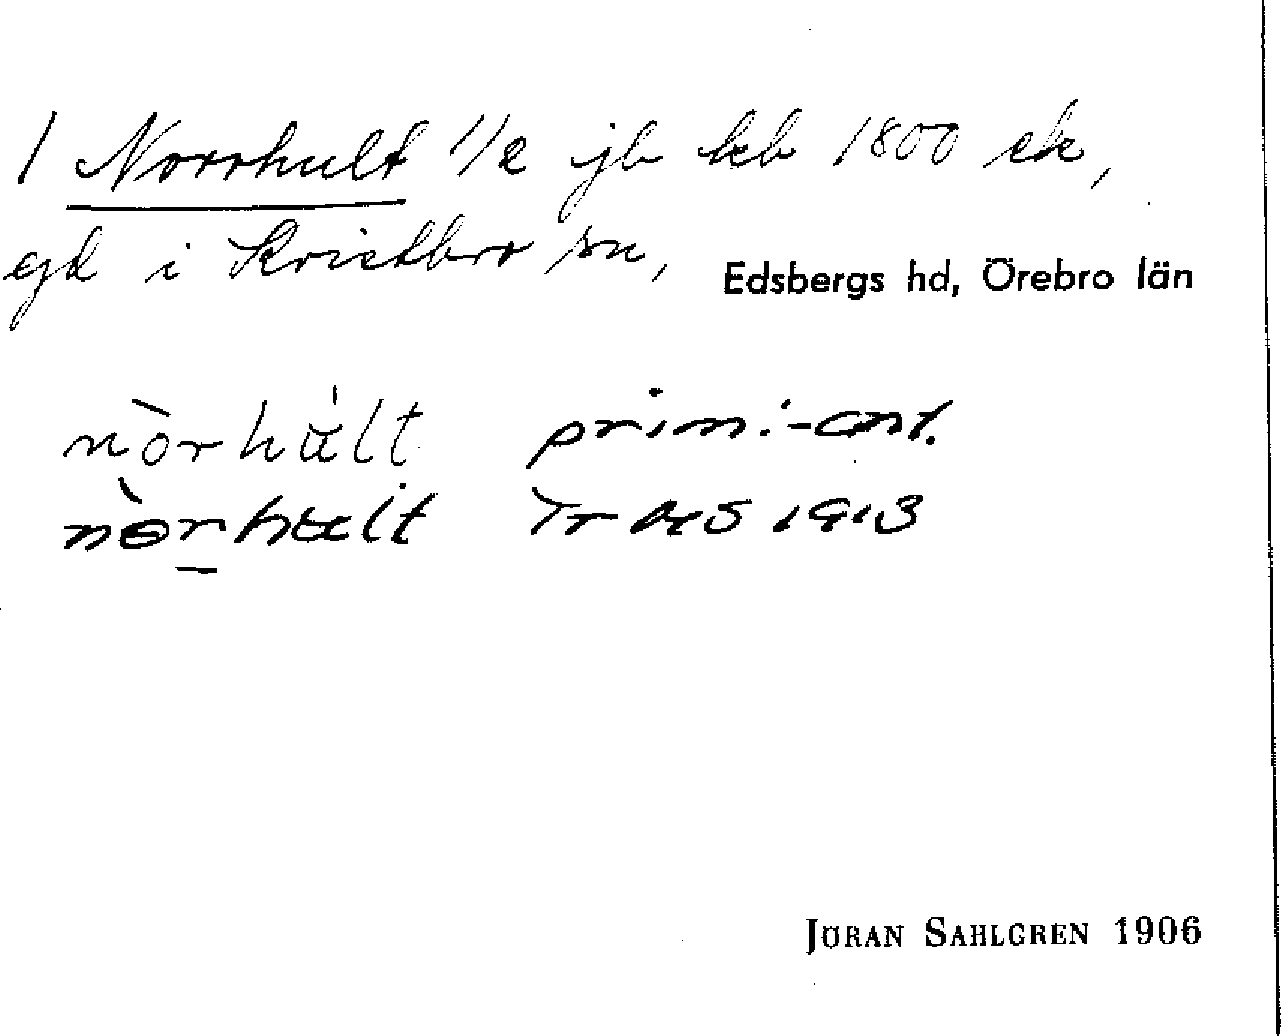 1 Norrhult 1/2 jb kb 1800 ek,
egd i Kvistbro sn, Edsbergs hd, Örebro län
nòrhult prim:-ant.
nòrhult Tr ORS 1913
JÖRAN SAHLGREN 1906